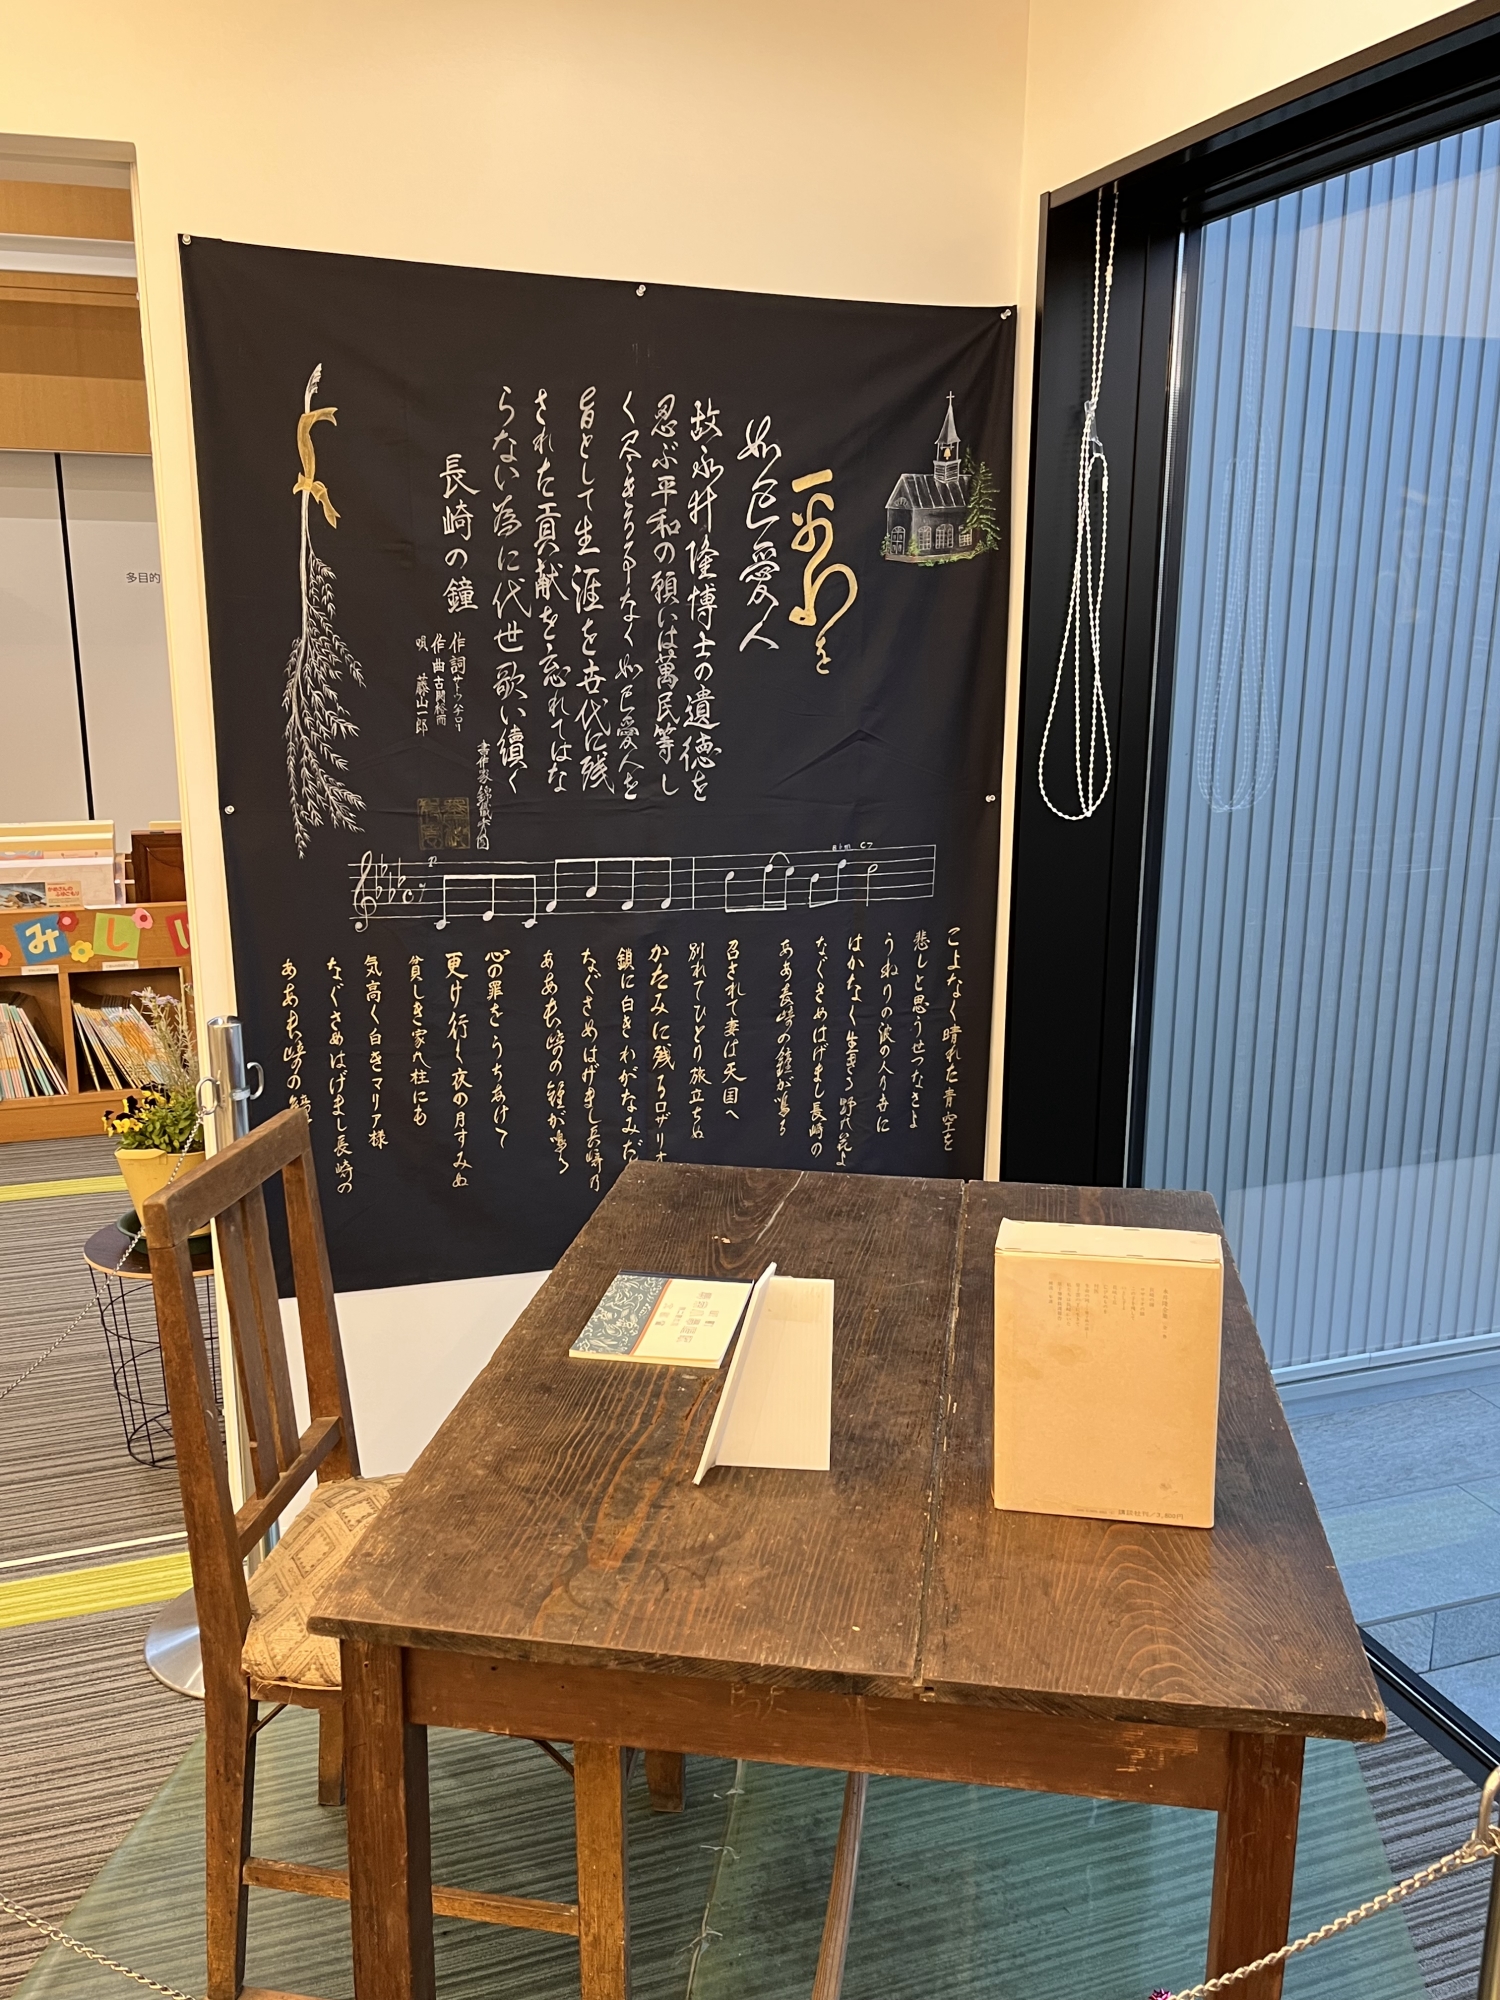 平和を
如己愛人
故永井隆博士の遺徳を
忍ぶ平和の願いは萬民等し
く尽きる事なく如己愛人を
旨として生涯を古代に残
された貢献を忘れてはな
らない為に代世歌い續く
長崎の鐘
作詞 サトウハチロー
作曲 古関裕而
唄 藤山一郎
C7
こよなく晴れた青空を
悲しと思うせつなさよ
うねりの波の人の世に
はかなく生きる野の花よ
なぐさめはげまし長崎の
ああ長崎の鐘が鳴る
召されて妻は天国へ
別れてひとり旅立ちぬ
かたみに残るロザリオ
鎖に白きわがなみだ
なぐさめはげまし長崎乃
ああ長崎の鐘が鳴る
心の罪をうちあけて
更け行く夜の月すみぬ
貧しき家の柱にも
気高く白きマリア様
なぐさめはげまし長崎の
ああ長崎の鐘
多目的
みしい
講談社刊/3,800円